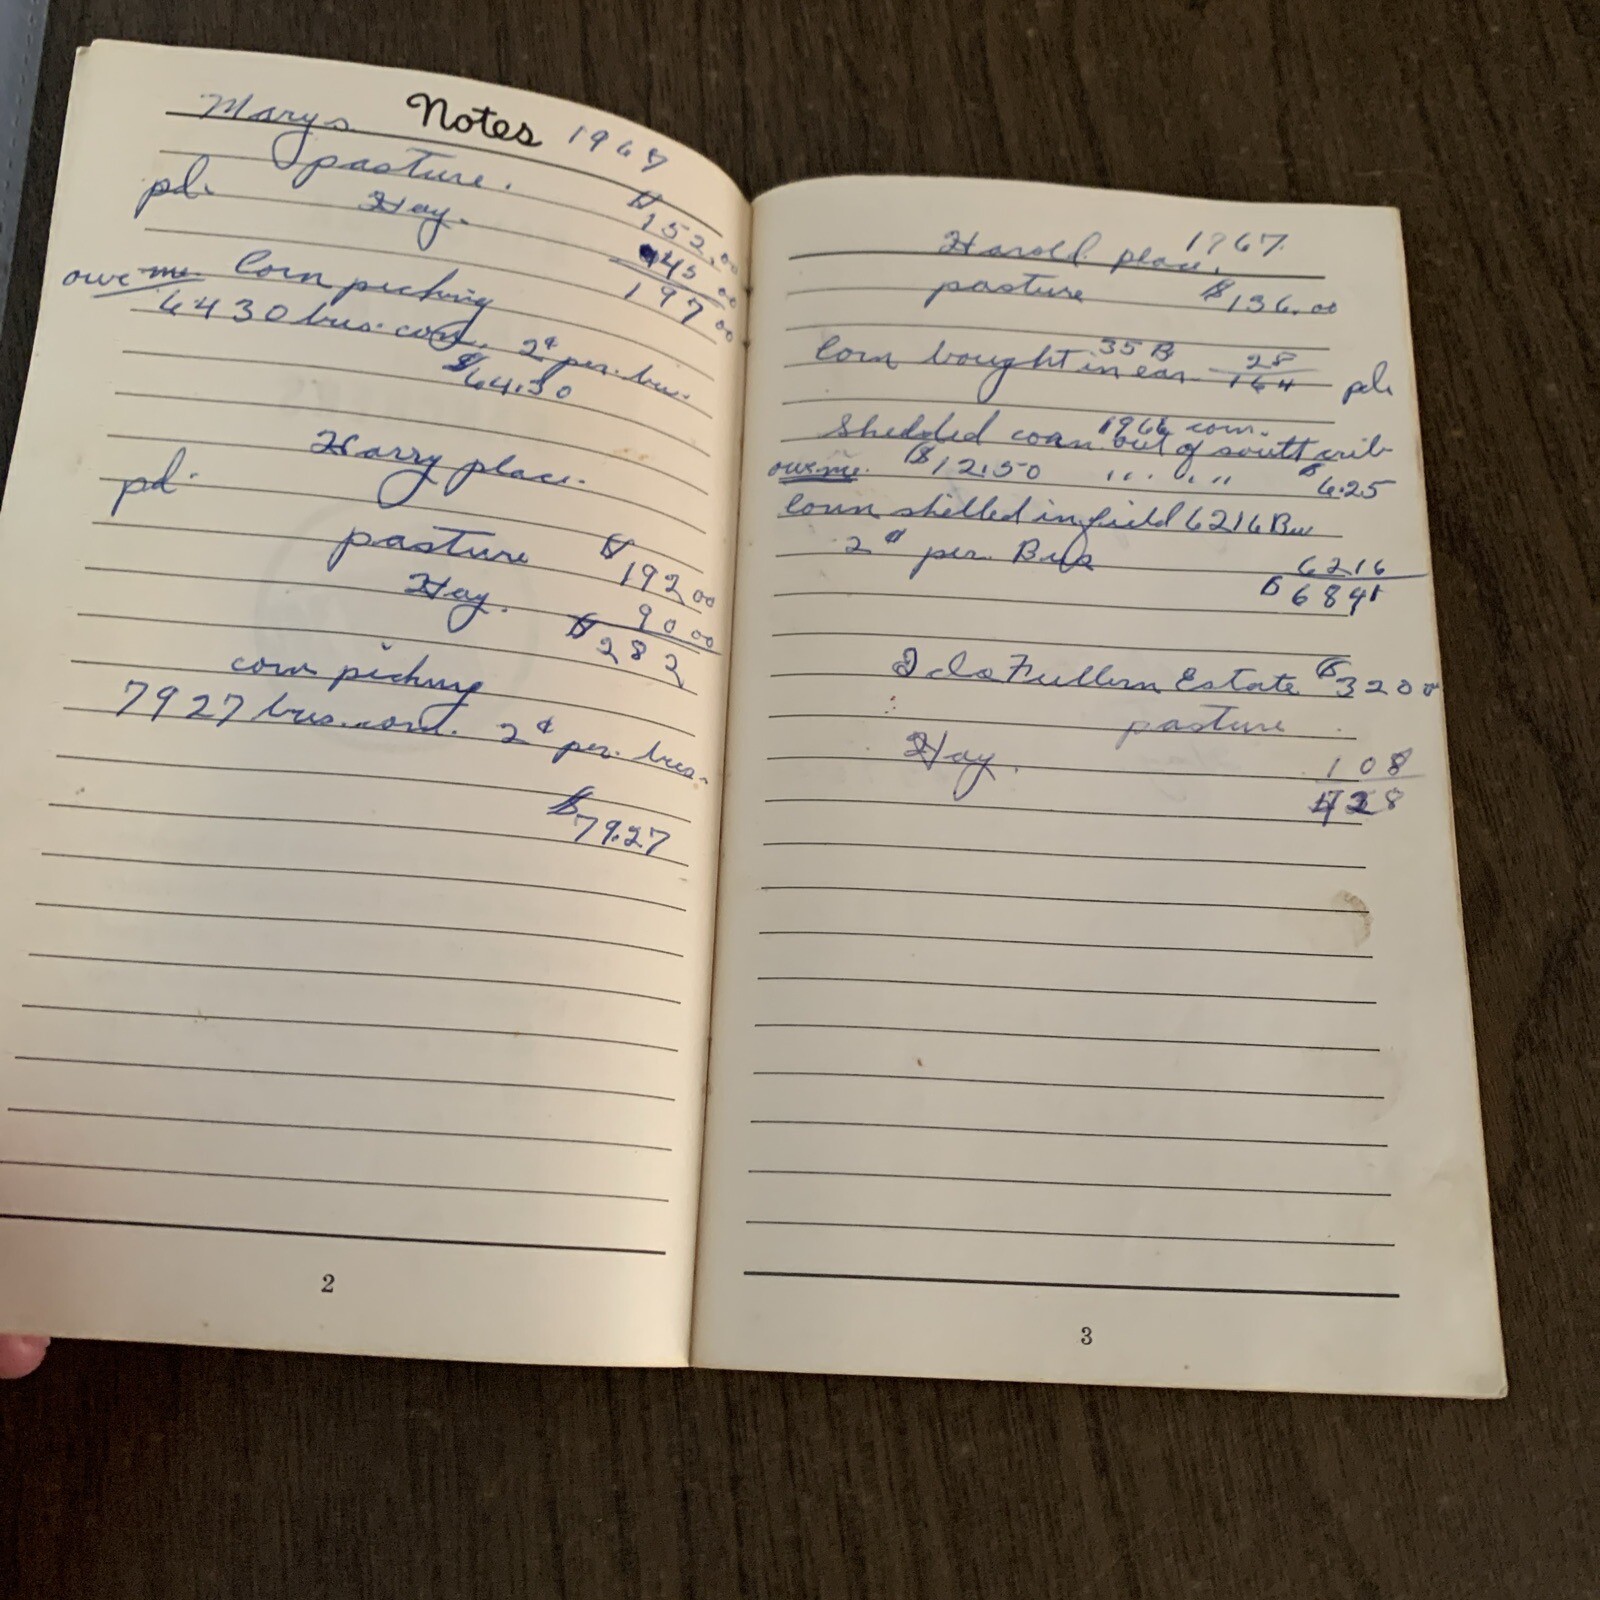 Marys Notes 1967
pasture. $152.00
pd. Hay. 45 00
197 00
owe me. Corn picking
6430 bus. corn. 2¢ per. bus.
$64.30
Harry place.
pd.
pasture $192 00
Hay. 90 00
$282
corn picking
7927 bus. corn. 2¢ per. bus.
$79.27
2
1967.
Harold place.
pasture $136.00
Corn bought in ear 35 B 28
164 pd.
1966 corn.
Shelled corn out of south crib
owe me. $12.50 " " " $6.25
Corn shelled in field 6216 Bu
2¢ per. Bus 6216
$6841
Ida Fullern Estate $320 0
pasture
Hay. 108
428
3